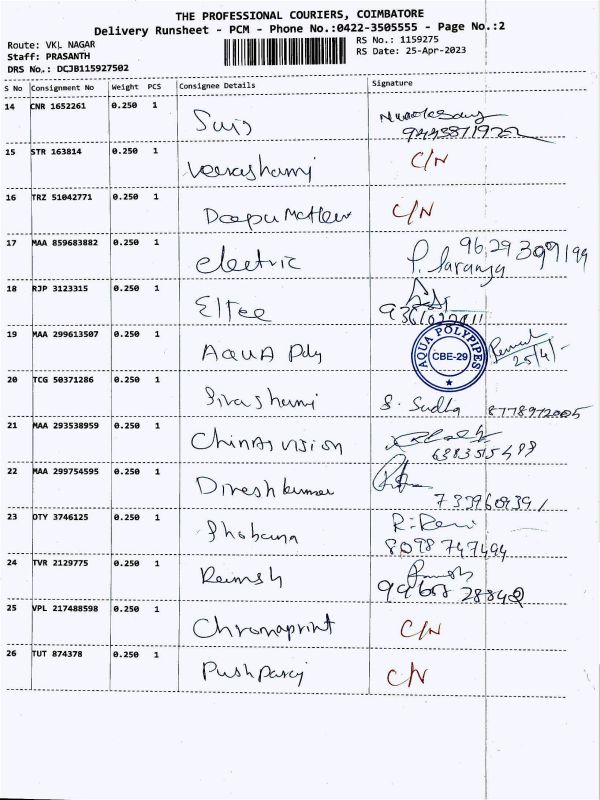 THE PROFESSIONAL COURIERS, COIMBATORE
Delivery Runsheet - PCM - Phone No.:0422-3505555 - Page No.:2
Route: VKL NAGAR
RS No.: 1159275
Staff: PRASANTH
RS Date: 25-Apr-2023
DRS No.: DCJB115927502
S No Consignment No Weight PCS Consignee Details Signature
14 CNR 1652261 0.250 1
15 STR 163814 0.250 1 Veerashami C/N
16 TRZ 51042771 0.250 1 Deepu Mathew C/N
17 MAA 859683882 0.250 1 electric P. Saranya
18 RJP 3123315 0.250 1 Eltee
19 MAA 299613507 0.250 1 AQUA Poly AQUA POLYPIPES CBE-29 25/4/-
20 TCG 50371286 0.250 1 Sivashami S. Sudha
21 MAA 293538959 0.250 1 Chinas vision
22 MAA 299754595 0.250 1 Dineshkumar
23 OTY 3746125 0.250 1 Shobana 8098747494
24 TVR 2129775 0.250 1 Ramesh
25 VPL 217488598 0.250 1 Chromaprint C/N
26 TUT 874378 0.250 1 Pushparaj C/N